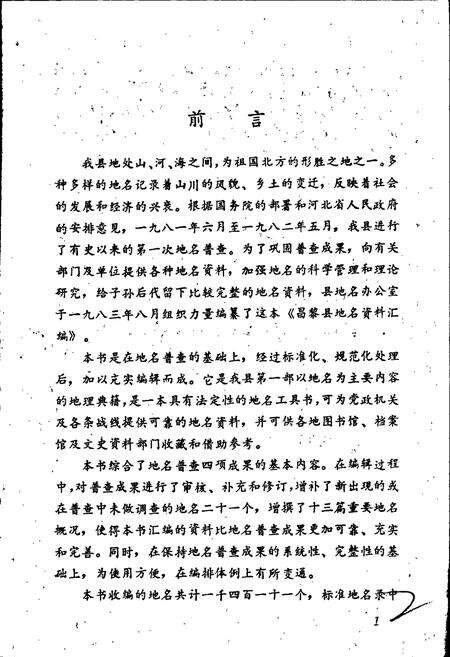 前言
我县地处山、河、海之间，为祖国北方的形胜之地之一。多
种多样的地名记录着山川的风貌、乡土的变迁，反映着社会
的发展和经济的兴衰。根据国务院的部署和河北省人民政府
的安排意见，一九八一年六月至一九八二年五月，我县进行
了有史以来的第一次地名普查。为了巩固普查成果，向有关
部门及单位提供各种地名资料，加强地名的科学管理和理论
研究，给子孙后代留下比较完整的地名资料，县地名办公室
于一九八三年八月组织力量编纂了这本《昌黎县地名资料汇
编》。
本书是在地名普查的基础上，经过标准化、规范化处理
后，加以充实编辑而成。它是我县第一部以地名为主要内容
的地理典籍，是一本具有法定性的地名工具书，可为党政机关
及各条战线提供可靠的地名资料，并可供各地图书馆、档案
馆及文史资料部门收藏和借助参考。
本书综合了地名普查四项成果的基本内容。在编辑过程
中，对普查成果进行了审核、补充和修订，增补了新出现的或
在普查中未做调查的地名二十一个，增撰了十三篇重要地名
概况，使得本书汇编的资料比地名普查成果更加可靠、充实
和完善。同时，在保持地名普查成果的系统性、完整性的基
础上，为使用方便，在编排体例上有所变通。
本书收编的地名共计一千四百一十一个，标准地名录中
1